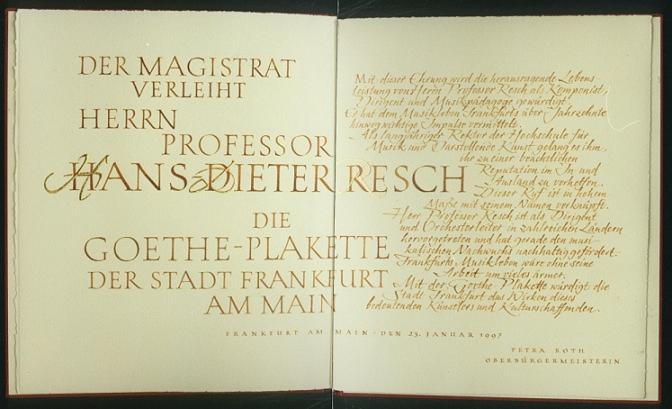 DER MAGISTRAT
VERLEIHT
HERRN
PROFESSOR
HANS-DIETER RESCH
DIE
GOETHE-PLAKETTE
DER STADT FRANKFURT
AM MAIN
Mit dieser Ehrung wird die herausragende Lebens-
leistung von Herrn Professor Resch als Komponist,
Dirigent und Musikpädagoge gewürdigt.
Er hat dem Musikleben Frankfurts über Jahrzehnte
hinweg wichtige Impulse vermittelt.
Als langjähriger Rektor der Hochschule für
Musik und Darstellende Kunst gelang es ihm,
ihr zu einer beachtlichen
Reputation im In- und
Ausland zu verhelfen.
Dieser Ruf ist in hohem
Maße mit seinem Namen verknüpft.
Herr Professor Resch ist als Dirigent
und Orchesterleiter in zahlreichen Ländern
hervorgetreten und hat gerade den musi-
kalischen Nachwuchs nachhaltig gefördert.
Frankfurts Musikleben wäre ohne seine
Arbeit um vieles ärmer.
Mit der Goethe-Plakette würdigt die
Stadt Frankfurt das Wirken dieses
bedeutenden Künstlers und Kulturschaffenden.
FRANKFURT AM MAIN · DEN 23. JANUAR 1997
PETRA ROTH
OBERBÜRGERMEISTERIN